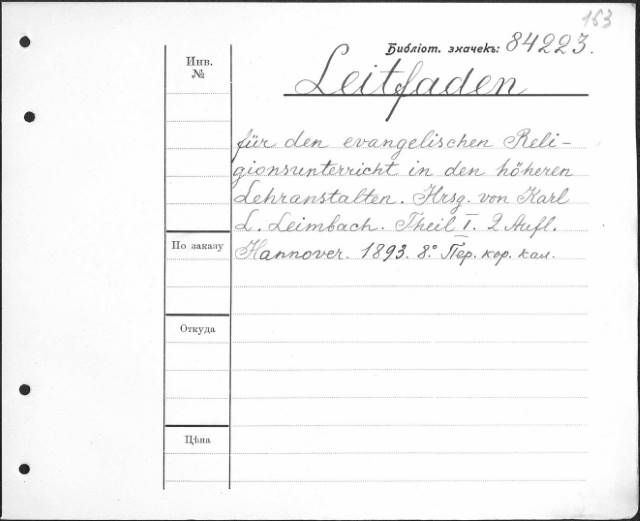 153
Библіот. значекъ: 84223.
Инв.
№
Leitfaden
für den evangelischen Reli-
gionsunterricht in den höheren
Lehranstalten. Hrsg. von Karl
L. Leimbach. Theil I. 2 Aufl.
По заказу
Hannover. 1893. 8.° Пер. кор. кал.
Откуда
Цѣна